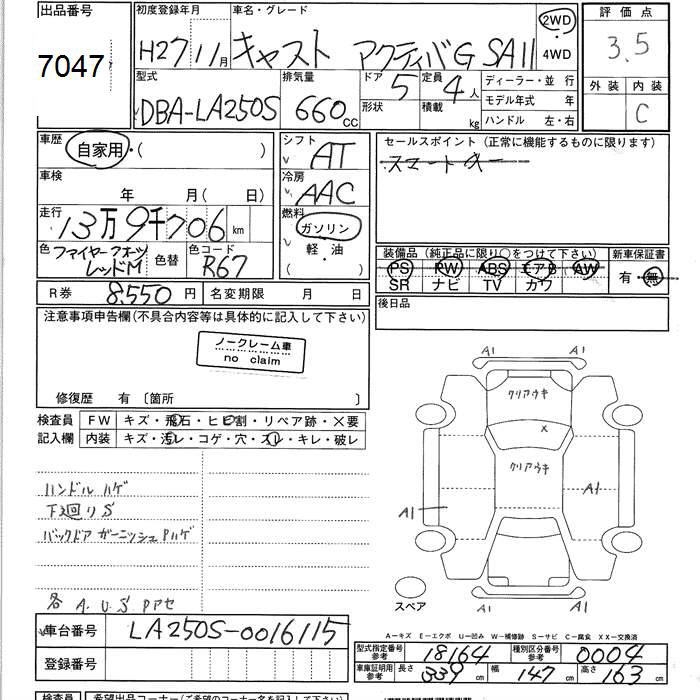 出品番号
7047
初度登録年月
H27 11月
車名・グレード
キャスト アクティバG SAⅡ
2WD
・
4WD
評価点
3.5
外装
内装
C
型式
DBA-LA250S
排気量
660 CC
ドア 5
形状
定員 4人
積載 kg
ディーラー・並 行
モデル年式 年
ハンドル 左・右
車歴
自家用・( )
車検
年 月( 日)
走行
13万9千706 km
色 ファイヤークオーツ
レッドM
色替
色コード
R67
シフト
AT
冷房
AAC
燃料
ガソリン
軽・油
( )
セールスポイント (正常に機能するものに限ります)
スマートキー
装備品 (純正品に限り○をつけて下さい)
PS PW ABS エアB AW
SR ナビ TV カワ
新車保証書
有・無
R券 8,550 円
名変期限 月 日
後日品
注意事項申告欄(不具合内容等は具体的に記入して下さい)
ノークレーム車
no claim
修復歴 有 〔箇所 〕
検査員
記入欄
FW キズ・飛石・ヒビ割・リペア跡・×要
内装 キズ・汚レ・コゲ・穴・スレ・キレ・破レ
ハンドル ハゲ
下廻りS
バックドア ガーニッシュ Pハゲ
各 A.U.S Pアセ
A1
A1
クリアウキ
×
クリアウキ
A1
A1
スペア
A1
A1
A－キズ E－エクボ U－凹み W－補修跡 S－サビ C－腐食 XX－交換済
車台番号
LA250S-0016115
登録番号
型式指定番号
参考
18164
種別区分番号
参考
0004
車庫証明用
参考
長さ 339 cm
幅 147 cm
高さ 163 cm
検査員
希望出品コーナー(ご希望のコーナー名を記入して下さい)